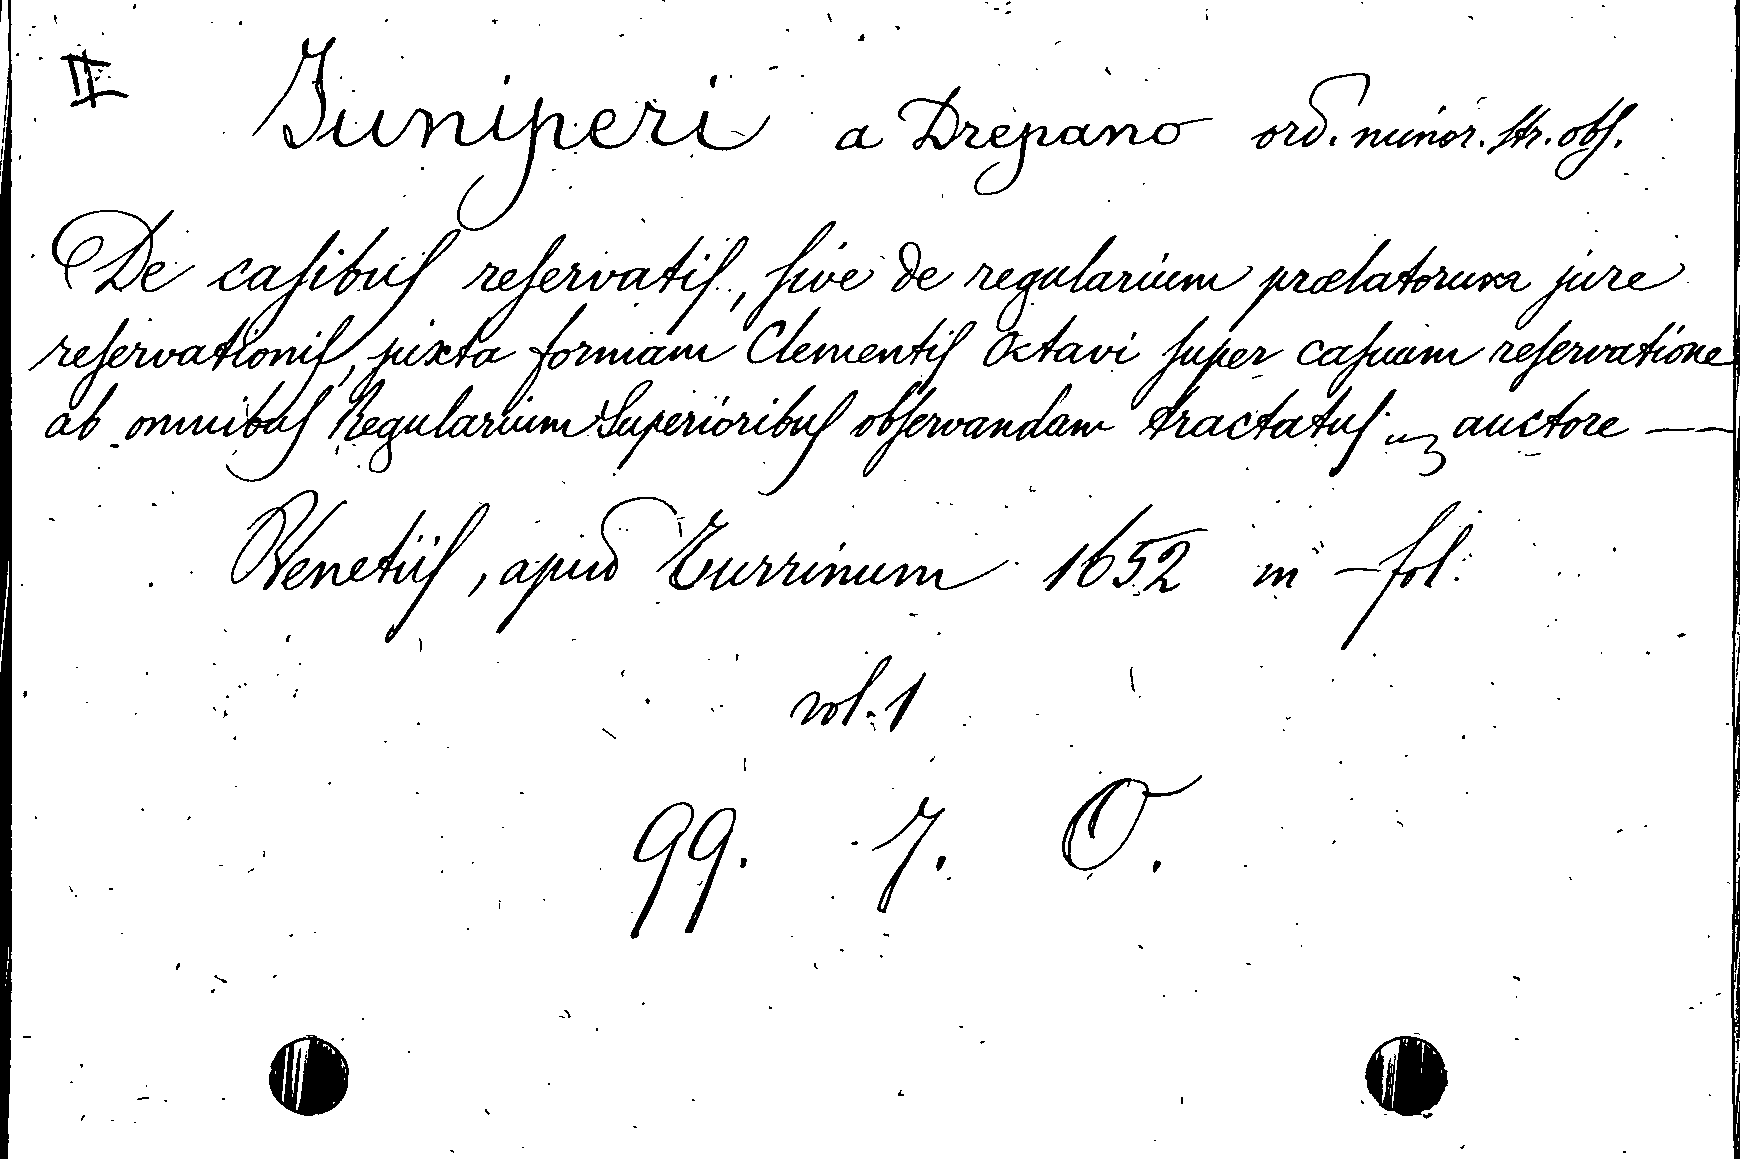 II Juniperi a Drepano ord. minor. str. obs.
De casibus reservatis, sive de regularium prælatorum jure
reservationis, juxta formam Clementis Octavi super casuum reservatione
ab omnibus Regularium Superioribus observandam tractatus auctore —
Venetiis, apud Turrinum 1652 in-fol.
vol. 1
99. 7. O.